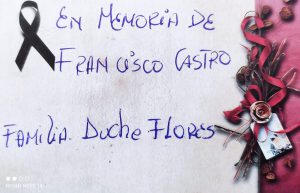 EN MEMORIA DE
FRANCISCO CASTRO
FAMILIA. DUCHE FLORES